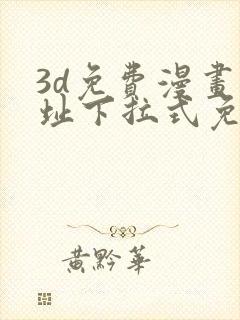 3d免費漫畫
址下拉式免
黄黔華